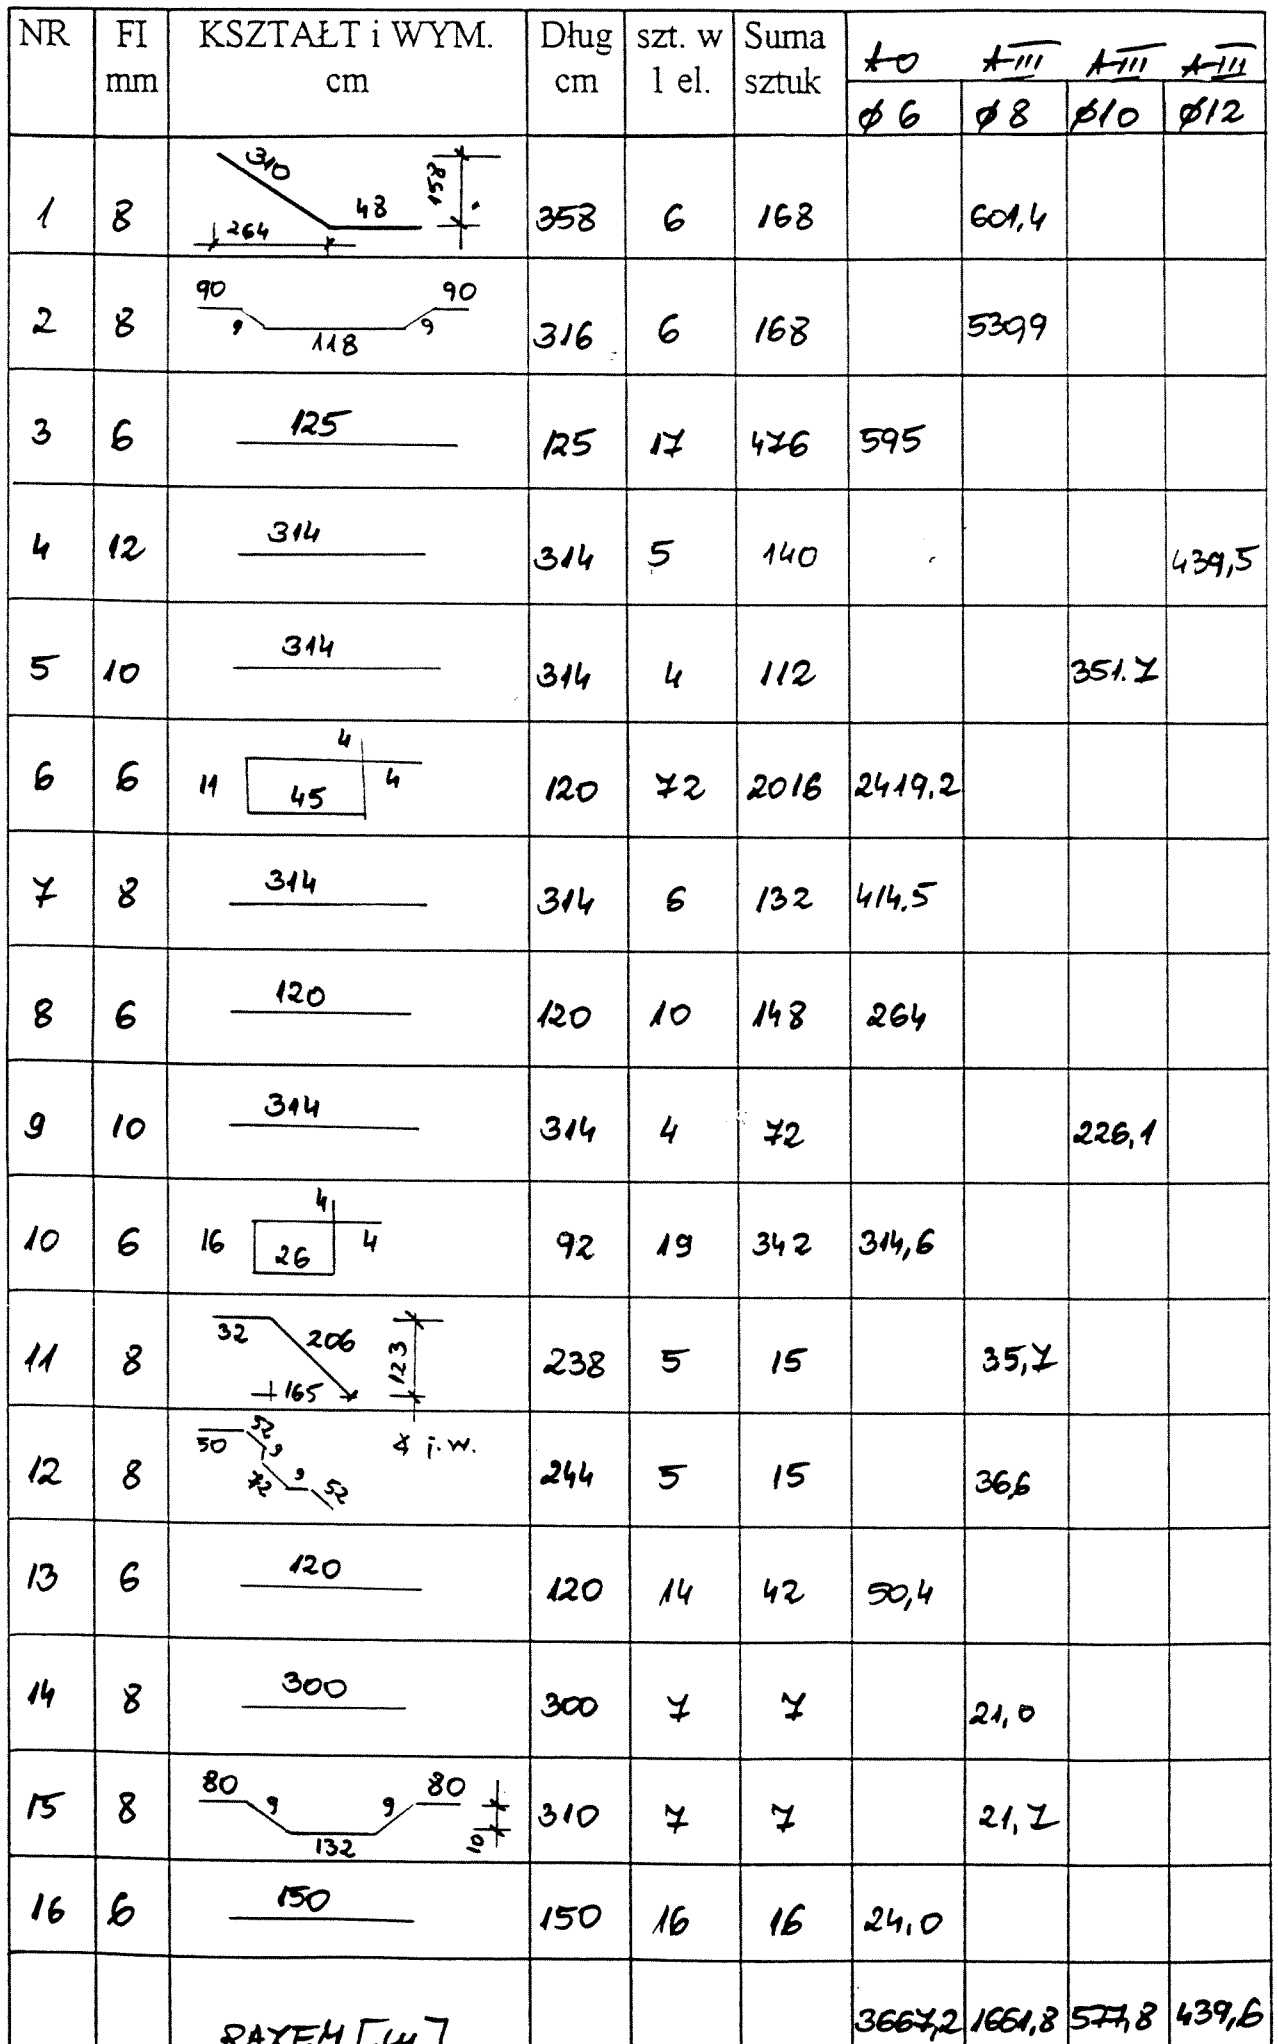 NR FI KSZTAŁT i WYM. Dług szt. w Suma A-0 A-III A-III A-III
mm cm cm 1 el. sztuk ø6 ø8 ø10 ø12
310 48 158 264
1 8 358 6 168 601,4
90 9 118 9 90
2 8 316 6 168 5309
3 6 125 125 17 476 595
4 12 314 314 5 140 439,5
5 10 314 314 4 112 351.7
6 6 11 45 4 4 120 72 2016 2419.2
7 8 314 314 6 132 414.5
8 6 120 120 10 148 264
9 10 314 314 4 72 226,1
10 6 16 26 4 4 92 19 342 314,6
11 8 32 206 165 123 238 5 15 35,7
∢ j.w.
12 8 50 52 9 72 9 52 244 5 15 36,6
13 6 120 120 14 42 50,4
14 8 300 300 7 7 21,0
15 8 80 9 132 9 80 10 310 7 7 21,7
16 6 150 150 16 16 24.0
RAZEM [m] 3667,2 1661,8 577,8 439,6